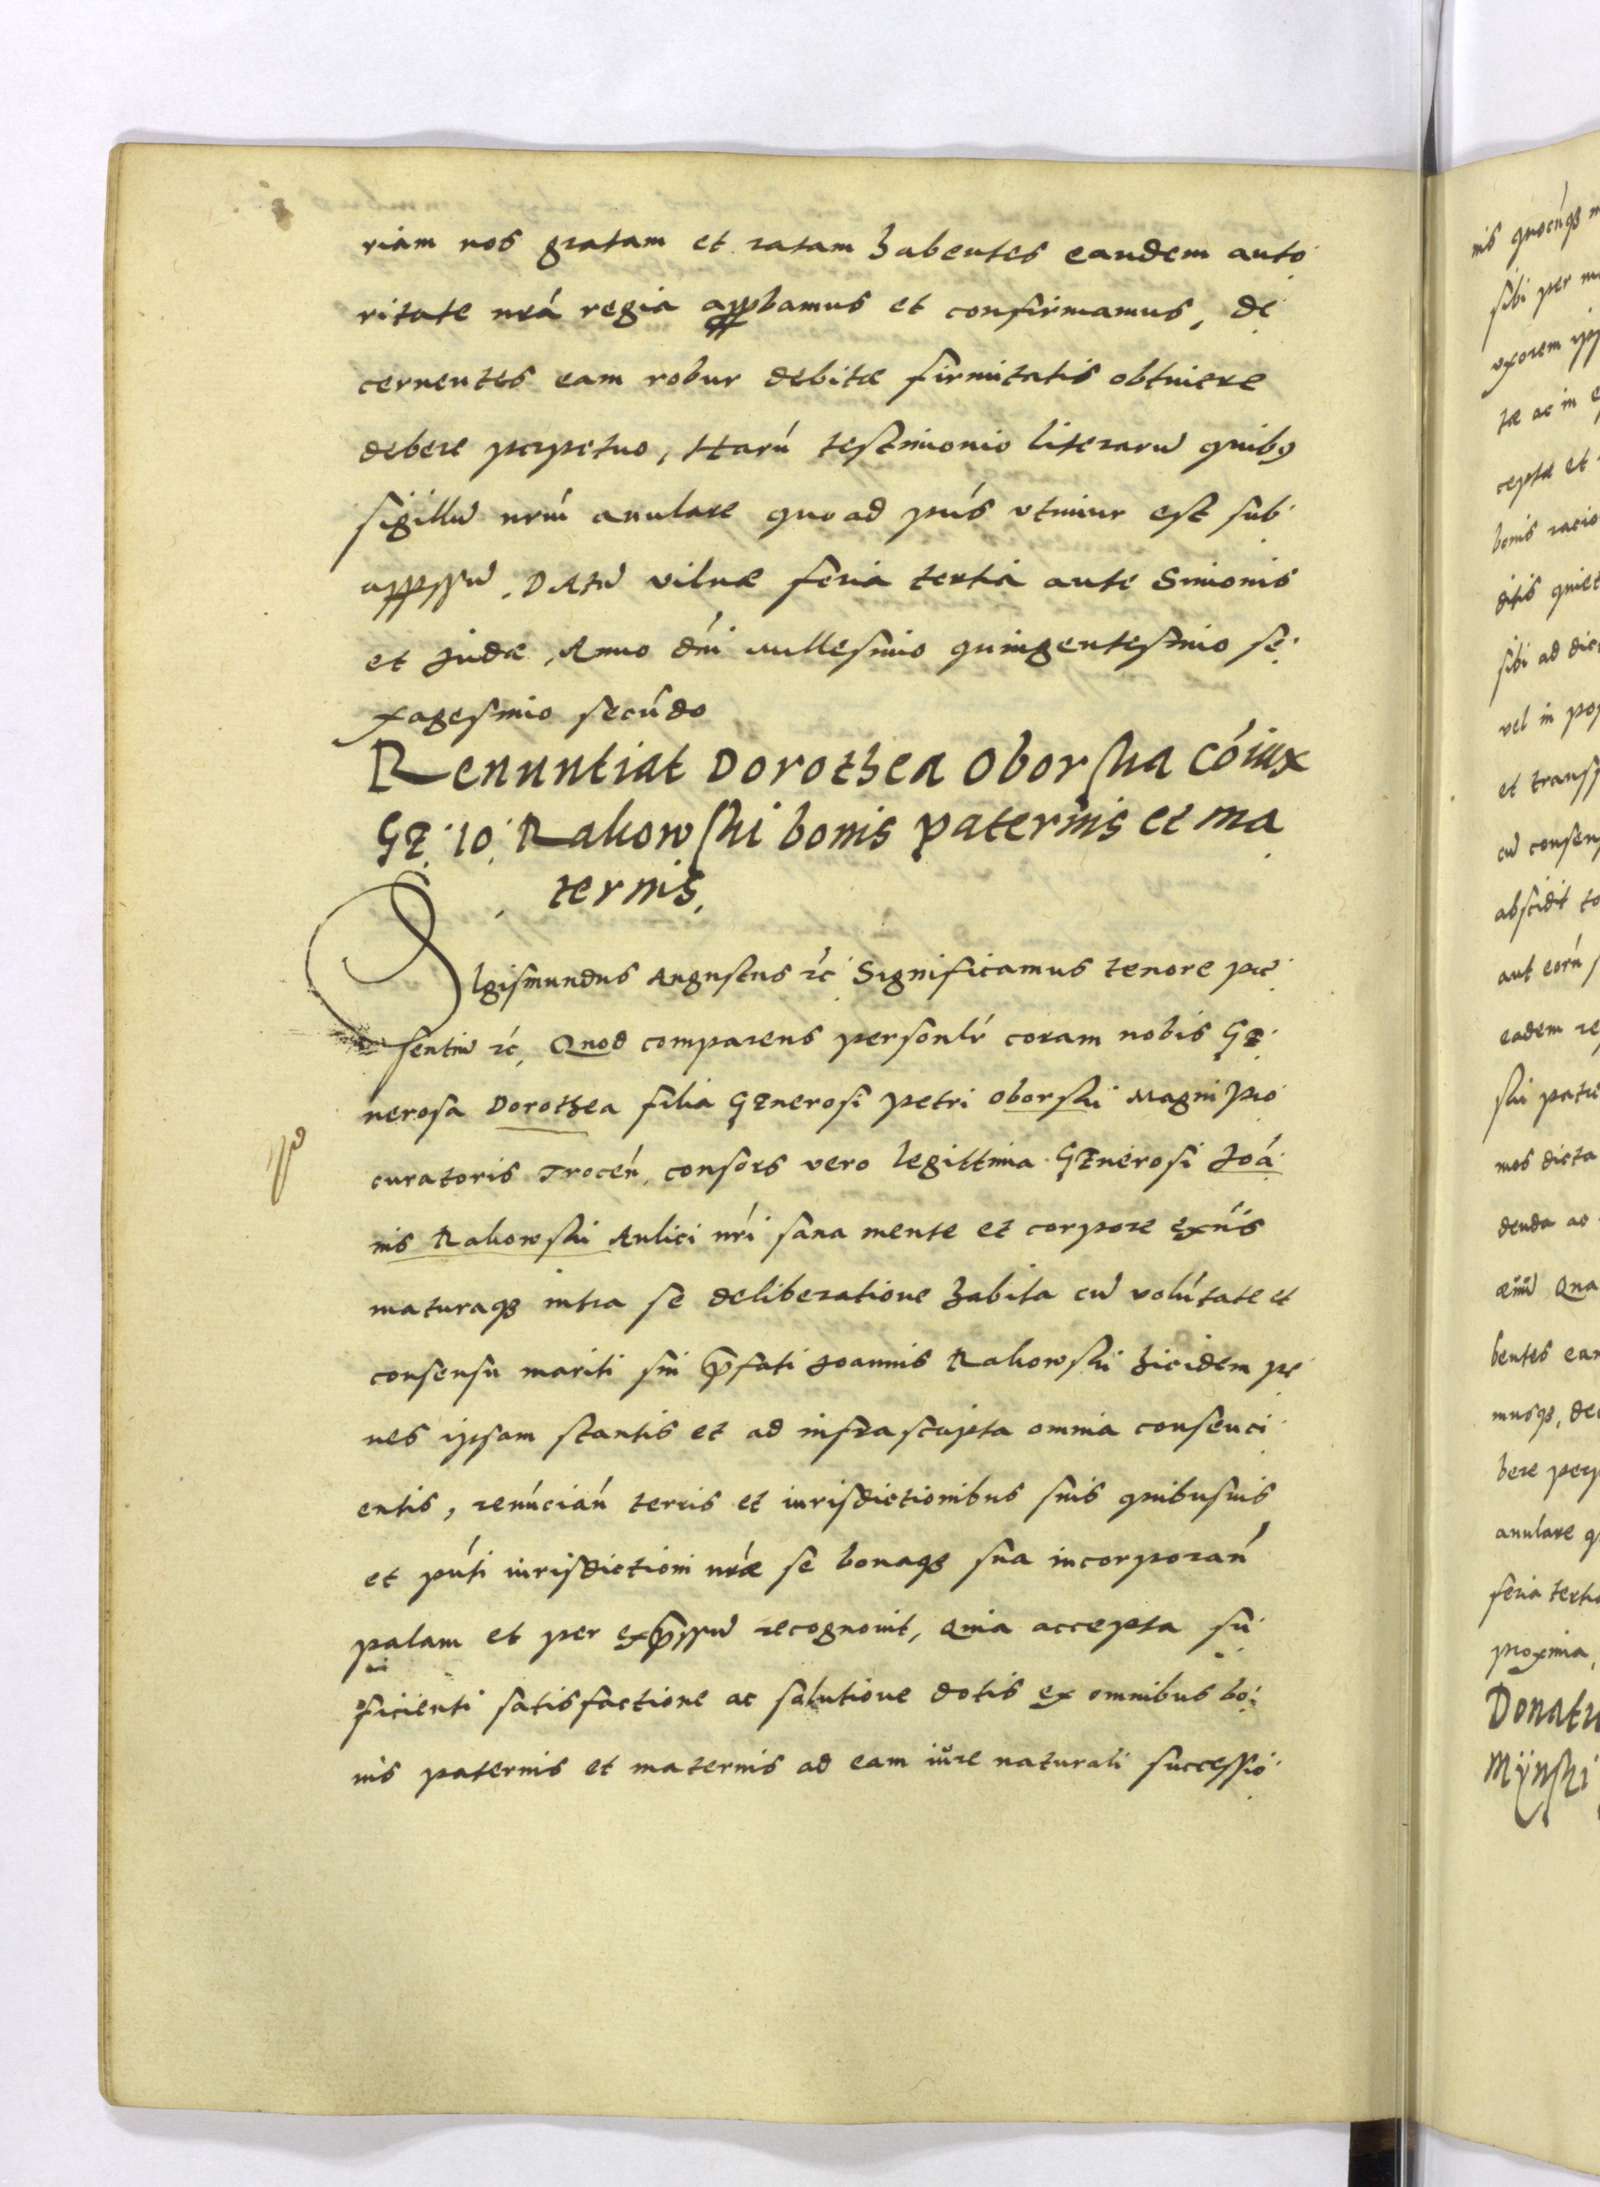 riam nos gratam et ratam habentes eandem auto
ritate nrã regia appbamus et confirmamus, de
cernentes eam robur debitæ firmitatis obtinere
debere perpetuo, Harũ testimonio literarũ quibus
sigillũ nrũ anulare quo ad pñs vtimur est sub
appssũ. DAtũ vilnæ feria tertia ante Simonis
et Judæ, Anno dñi millesimo quingentesimo se
xagesimo secũdo
Renuntiat Dorothea Oborska cõiux
GE: Io: Rakowski bonis paternis et ma
ternis.
SIgismundus Augustus rc Significamus tenore præ
sentiũ rc, Quod comparens personlr coram nobis Ge
nerosa Dorothea filia GEnerosi petri oborski Magni pro
curatoris Trocen̄, consors vero legittima GEnerosi Joã
nis Rakowski Aulici nri sana mente et corpore exñs
maturaq3 intra se deliberatione habita cũ volũtate et
consensu mariti sui p̃fati Joannis Rakowski hicidem pe
nes ipsam stantis et ad infrascripta omnia consenci
entis, renũcian̄ terris et iurisdictionibus suis quibusuis
et pñti iurisdictioni nræ se bonaq3 sua incorporan̄
palam et per exp̃ssũ recognouit, Quia accepta su
fficienti satisfactione ac solutione dotis ex omnibus bo
nis paternis et maternis ad eam iure naturali successio
nis quocũq3
sibi per
vxorem
tæ ac in
ceptæ et
bonis
ditis quiet
sibi ad dic
vel in
et transf
cũ consens
abscidit
aut eorũ
eadem re
ski patr
mos dicta
denda ac
Qua
bentes ean
musq3, de
bere perp
anulare q
feria tertia
proxima,
Donatio
Mÿnski